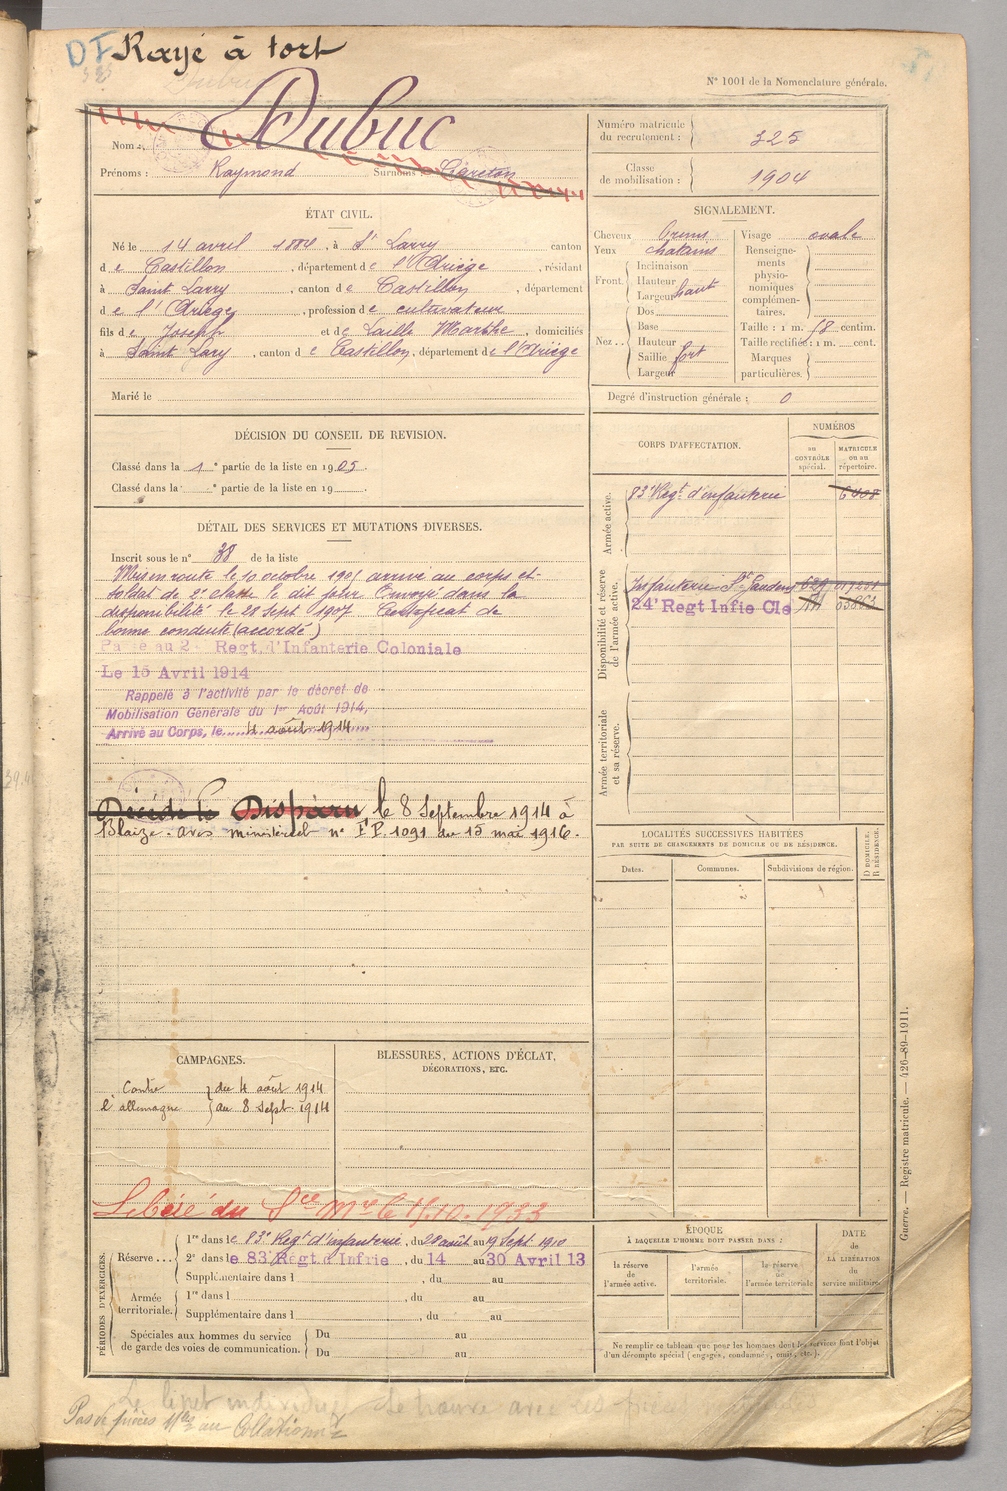 DF Rayé à tort
325
N° 1001 de la Nomenclature générale.
Nom : Dubuc
Prénoms : Raymond Surnoms :
ÉTAT CIVIL.
Né le 14 avril 1884, à St Larry canton
de Castillon, département de l'Ariège, résidant
à Saint Larry, canton de Castillon, département
de l'Ariège, profession de cultivateur
fils de Joseph et de Laille Marthe, domiciliés
à Saint Lary, canton de Castillon, département de l'Ariège
Marié le
DÉCISION DU CONSEIL DE REVISION.
Classé dans la 1e partie de la liste en 1905.
Classé dans la e partie de la liste en 19
DÉTAIL DES SERVICES ET MUTATIONS DIVERSES.
Inscrit sous le n° 38 de la liste
Mis en route le 10 octobre 1905 arrivé au corps et
soldat de 2e classe le dit jour Envoyé dans la
disponibilité le 28 sept 1907 Certificat de
bonne conduite (accordé)
Passé au 2 Regt. d'Infanterie Coloniale
Le 15 Avril 1914
Rappelé à l'activité par le décret de
Mobilisation Générale du 1er Août 1914,
Arrivé au Corps, le 4 août 1914
Décédé le Disparu le 8 Septembre 1914 à
Blaize. avis ministériel n° F.P. 1091 du 15 mai 1916.
CAMPAGNES.
Contre l'allemagne } du 4 août 1914
au 8 Sept. 1914
BLESSURES, ACTIONS D'ÉCLAT,
DÉCORATIONS, ETC.
Libéré du Sce Mre le 10. 1933
PÉRIODES D'EXERCICES.
Réserve... 1re dans le 83e Regt d'infanterie, du 28 août au 19 Sept. 1910
2e dans le 83 Regt.d Infrie, du 14 au 30 Avril 13
Supplémentaire dans l , du au
Armée territoriale. 1re dans l , du au
Supplémentaire dans l , du au
Spéciales aux hommes du service
de garde des voies de communication. Du au
Du au
Numéro matricule
du recrutement : 325
Classe
de mobilisation : 1904
SIGNALEMENT.
Cheveux bruns
Yeux chatains
Front. Inclinaison
Hauteur
Largeur haut
Nez.. Dos
Base
Hauteur
Saillie fort
Largeur
Visage ovale
Renseigne-
ments
physio-
nomiques
complémen-
taires.
Taille : 1 m. 68 centim.
Taille rectifiée : 1 m. cent.
Marques
particulières.
Degré d'instruction générale : 0
CORPS D'AFFECTATION.
NUMÉROS
au
CONTRÔLE
spécial.
MATRICULE
ou au
répertoire.
Armée active.
83e Regt. d'infanterie 6408
Disponibilité et réserve
de l'armée active.
Infanterie St Gaudens
24e Regt Infie Cle
Armée territoriale
et sa réserve.
LOCALITÉS SUCCESSIVES HABITÉES
PAR SUITE DE CHANGEMENTS DE DOMICILE OU DE RÉSIDENCE.
Dates. Communes. Subdivisions de région.
D DOMICILE.
R RÉSIDENCE.
ÉPOQUE
À LAQUELLE L'HOMME DOIT PASSER DANS :
la réserve
de
l'armée active.
l'armée
territoriale.
la réserve
de
l'armée territoriale
DATE
de
LA LIBÉRATION
du
service militaire.
Ne remplir ce tableau que pour les hommes dont les services font l'objet
d'un décompte spécial (engagés, condamnés, omis, etc.).
Guerre. — Registre matricule. — 426-89-1911.
Le livret individuel se trouve avec ces pièces
Pas de pièces au